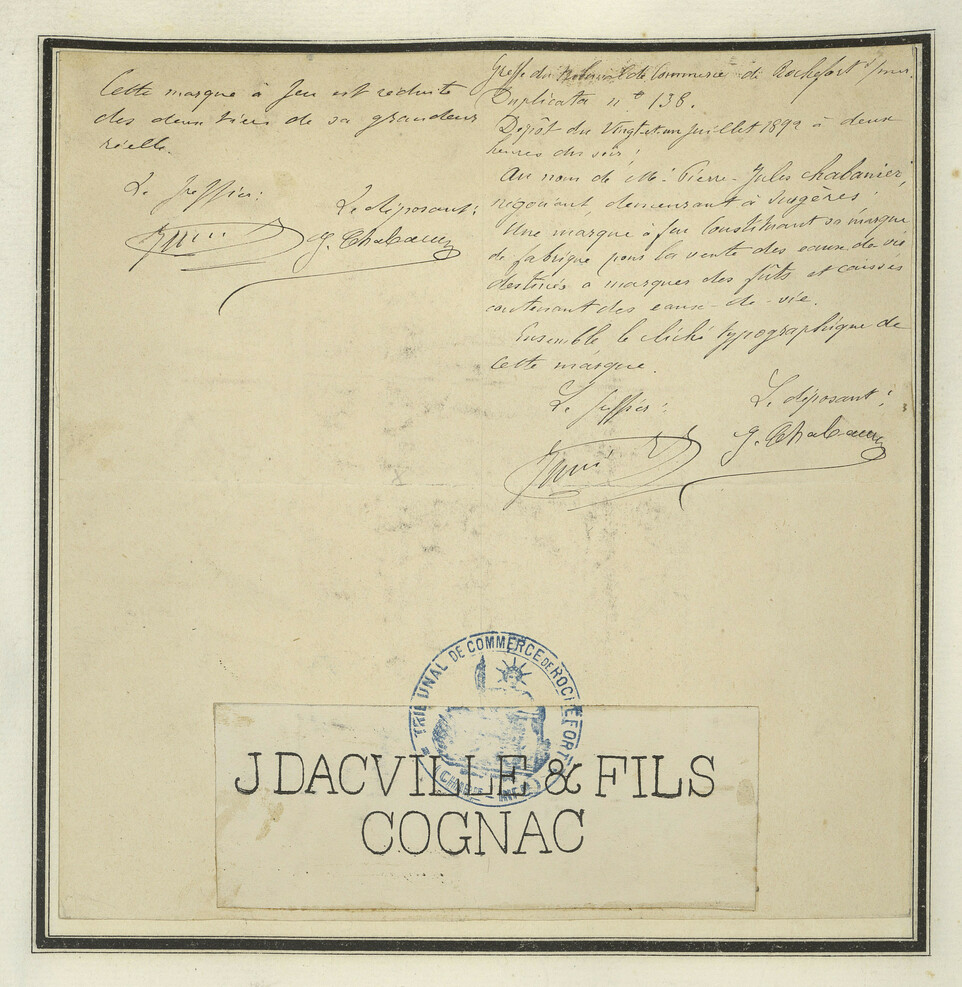 Cette marque à feu est réduite
des deux tiers de sa grandeur
réelle.
Le Greffier:
Le déposant:
Greffe du Tribunal de Commerce de Rochefort s/mer.
Duplicata n.º 138.
Dépôt du Vingt et un juillet 1892 à deux
heures du soir:
Au nom de M. Pierre-Jules Chabanier,
négociant, demeurant à Surgères:
Une marque à feu constituant sa marque
de fabrique pour la vente des eaux de vie
destinée à marquer des fûts et caisses
contenant des eaux-de-vie.
Ensemble le cliché typographique de
cette marque.
Le Greffier:
Le déposant:
TRIBUNAL DE COMMERCE DE ROCHEFORT
J DACVILLE & FILS
COGNAC